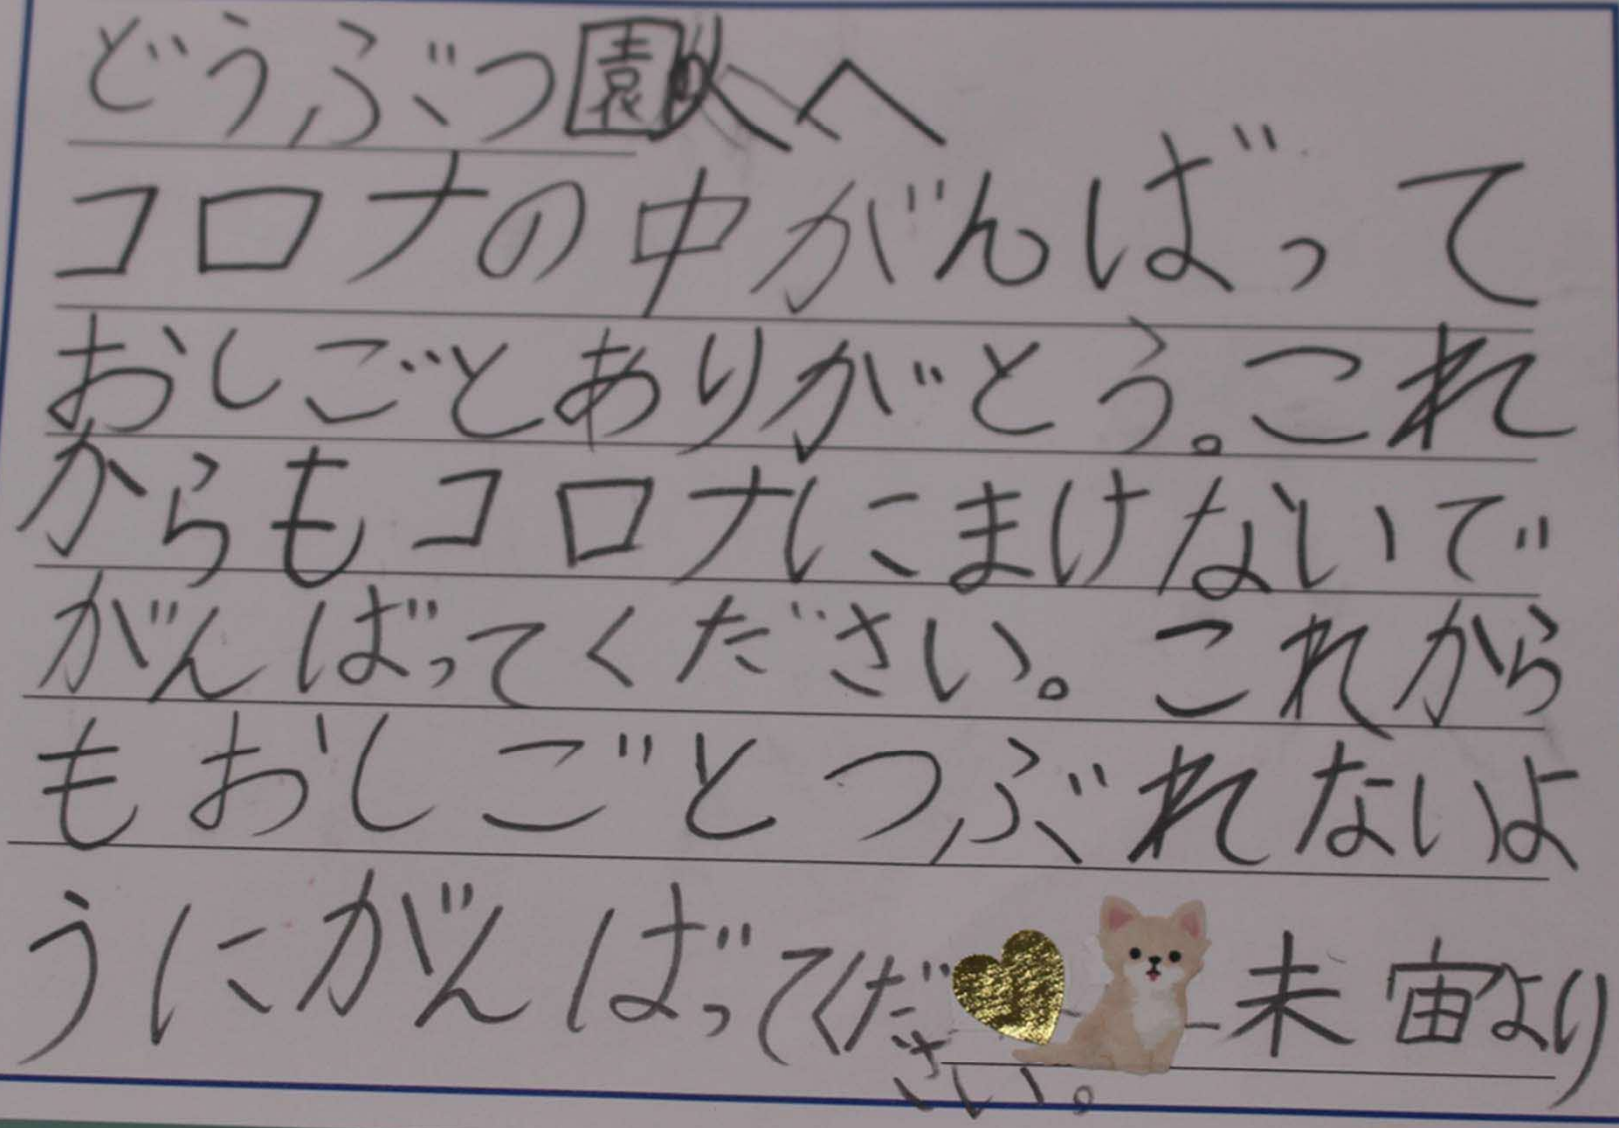 どうぶつ園の人へ
コロナの中がんばって
おしごとありがとう。これ
からもコロナにまけないで
がんばってください。これから
もおしごとつぶれないよ
うにがんばってください。
未宙より